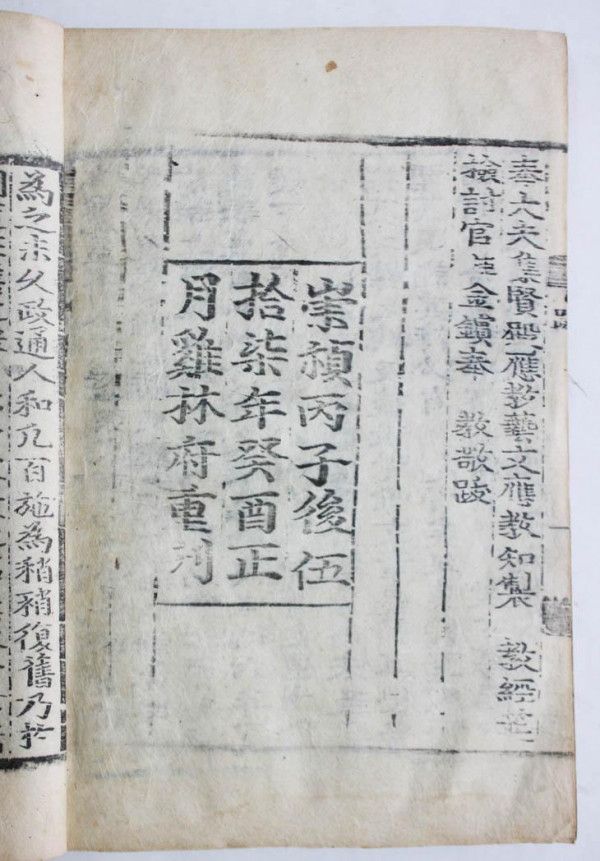 奉大夫集賢殿應教藝文應教知製 教經筵
檢討官臣金鑌奉 教敬跋
崇禎丙子後伍
拾柒年癸酉正
月雞林府重刊
為之未久政通人和凡百施為稍稍復舊乃扵